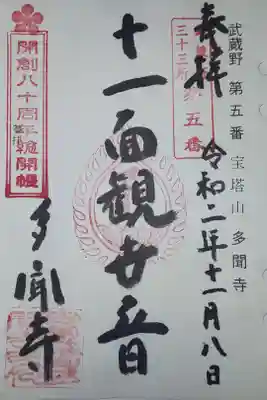 武蔵野 第五番 宝塔山 多聞寺
奉拝 令和二年十一月八日
三十三所
第五番
十一面観世音
多聞寺
開創八十周年記念開帳